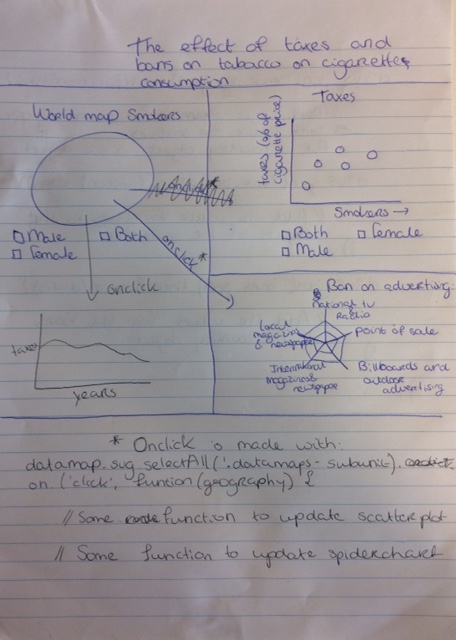 The effect of taxes and
bans on tobacco on cigarettes
consumption
World map Smokers
Male
Female
Both
onclick *
onclick
taxes
years
Taxes
taxes (% of
cigarette price)
Smokers →
Both
Female
Male
Ban on advertising:
National tv
Radio
Local
magazins
& newspaper
point of sale
International
magazins &
newspaper
Billboards and
outdoor
advertising
* Onclick is made with:
datamap.svg.selectAll('.datamaps-subunit').
on ('click', funtion(geography) {
// Some function to update scatterplot
// Some function to update spiderchart